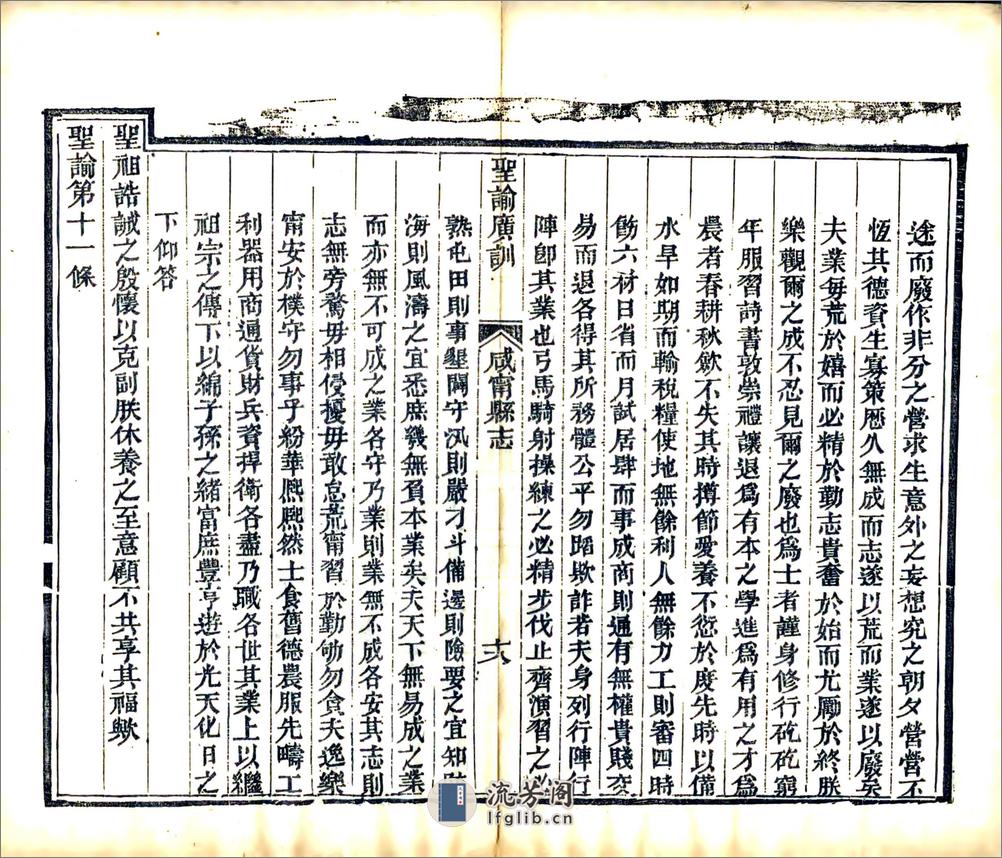 途而廢作非分之營求生意外之妄想究之朝夕營營不
恆其德資生寡策歷久無成而志遂以荒而業遂以廢矣
夫業每荒於嬉而必精於勤志貴奮於始而尤勵於終朕
樂觀爾之成不忍見爾之廢也爲士者謹身修行矻矻窮
年服習詩書敦崇禮讓退爲有本之學進爲有用之才爲
農者春耕秋斂不失其時撙節愛養不愆於度先時以備
水旱如期而輸稅糧使地無餘利人無餘力工則審四時
飭六材日省而月試居肆而事成商則通有無權貴賤交
易而退各得其所務體公平勿蹈欺詐若夫身列行陣行
陣卽其業也弓馬騎射操練之必精步伐止齊演習之必
聖諭廣訓 咸甯縣志 十六
熟屯田則事墾闢守汛則嚴刁斗備邊則險要之宜知防
海則風濤之宜悉庶幾無負本業矣夫天下無易成之業
而亦無不可成之業各守乃業則業無不成各安其志則
志無旁騖毋相侵擾毋敢怠荒甯習於勤劬勿貪夫逸樂
甯安於樸守勿事乎紛華熙熙然士食舊德農服先疇工
利器用商通貨財兵資捍衛各盡乃職各世其業上以繼
祖宗之傳下以綿子孫之緒富庶豐亨遊於光天化日之
下仰答
聖祖誥誡之殷懷以克副朕休養之至意顧不共享其福歟
聖諭第十一條
流芳阁
lfglib.cn